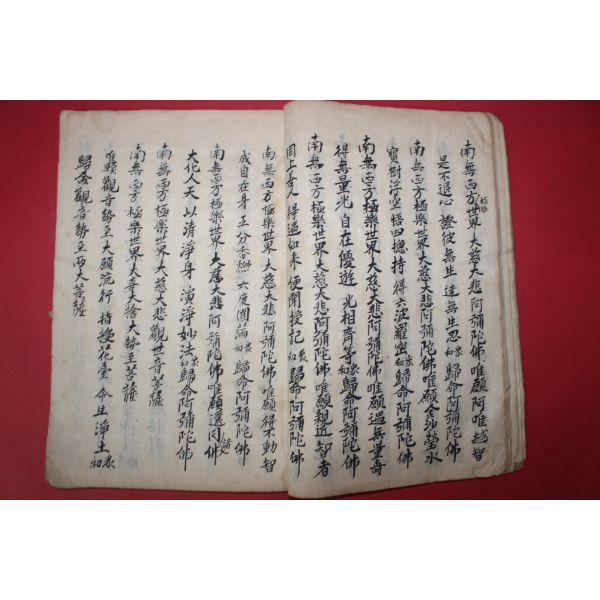 南無西方極樂世界大慈大悲阿彌陀佛唯願阿唯越智
是不退心 證彼無生 達無生忍 衆和 歸命阿彌陀佛
南無西方極樂世界大慈大悲阿彌陀佛唯願金沙瑩水
寶樹浮空 悟四揔持 得六波羅密 衆和 歸命阿彌陀佛
南無西方極樂世界大慈大悲阿彌陀佛唯願遇無量壽
得無量光 自在優遊 光相齊等 衆和 歸命阿彌陀佛
南無西方極樂世界大慈大悲阿彌陀佛唯願親近智者
同上善人 得遇如来 便聞授記 衆和 歸命阿彌陀佛
南無西方極樂世界大慈大悲阿彌陀佛唯願得不動智
成自在身 五分香 六度圓滿 衆和 歸命阿彌陀佛
南無西方極樂世界大慈大悲阿彌陀佛唯願還同諸佛
大化人天 以清淨身 演淨妙法 衆和 歸命阿彌陀佛
南無西方極樂世界大慈大悲觀世音菩薩
南無西方極樂世界大喜大捨大勢至菩薩
唯願觀音勢至 大願流行 指授花臺 令生淨土 衆和
歸命觀音勢至兩大菩薩